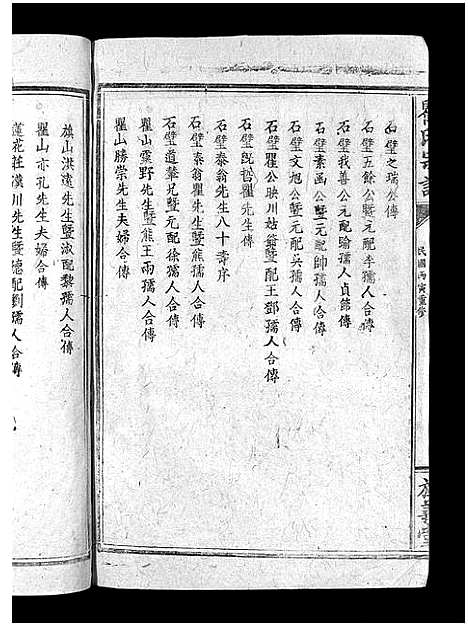 民國丙寅重修
石璧之瑞公傳
石璧五餘公暨元配李孺人合傳
石璧我善公元配喻孺人貞節傳
石璧素函公暨元配帥孺人合傳
石璧文旭公暨元配吳孺人合傳
石璧瞿公映川姑翁暨配王鄧孺人合傳
石璧既哲瞿先生傳
石璧泰翁先生八十壽序
石璧泰翁瞿先生暨熊孺人合傳
石璧道蓁兄暨元配徐孺人合傳
瞿山雲野先生暨熊王兩孺人合傳
瞿山勝崇先生夫婦合傳
旗山洪遠先生暨淑配黎孺人合傳
瞿山亦孔先生夫婦合傳
蓮花莊漢川先生暨德配劉孺人合傳